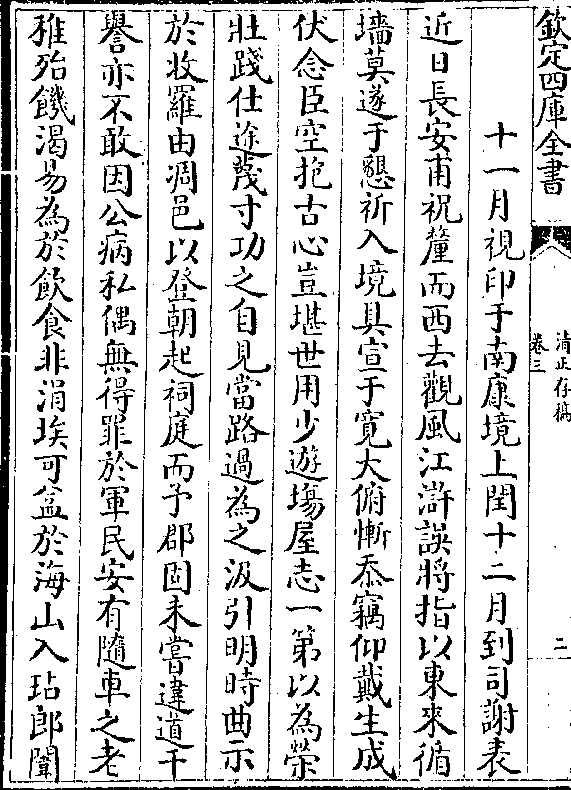 欽定四庫全書
清正存稿
卷三
二
十一月視印于南康境上閏十二月到司謝表
近日長安甫祝釐而西去觀風江滸誤將指以東來循
墻莫遂于懇祈入境具宣于寛大俯慚忝竊仰戴生成
伏念臣空抱古心豈堪世用少遊塲屋志一第以為榮
壯踐仕途蔑寸功之自見當路過為之汲引明時曲示
於收羅由凋邑以登朝起祠庭而予郡固未嘗違道干
譽亦不敢因公病私偶無得罪於軍民安有隨車之老
稚殆饑渴易為於飲食非涓埃可益於海山入玷郎闈